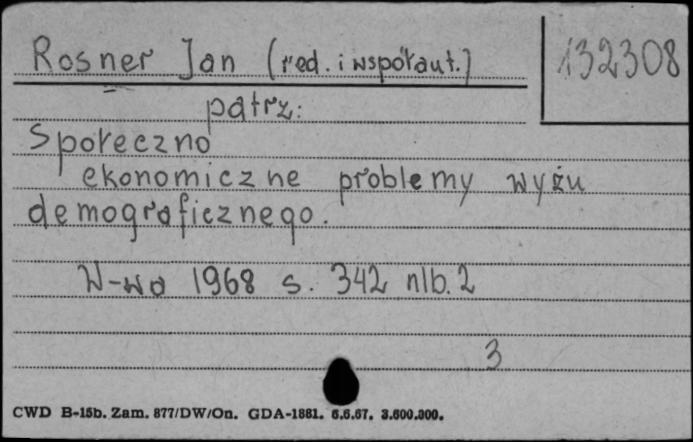 Rosner Jan (red. i współaut.)
132308
patrz:
Społeczno
ekonomiczne problemy wyżu
demograficznego.
W-wa 1968 s. 342 nlb. 2
3
CWD B-15b. Zam. 877/DW/On. GDA-1881. 6.6.67. 3.600.000.